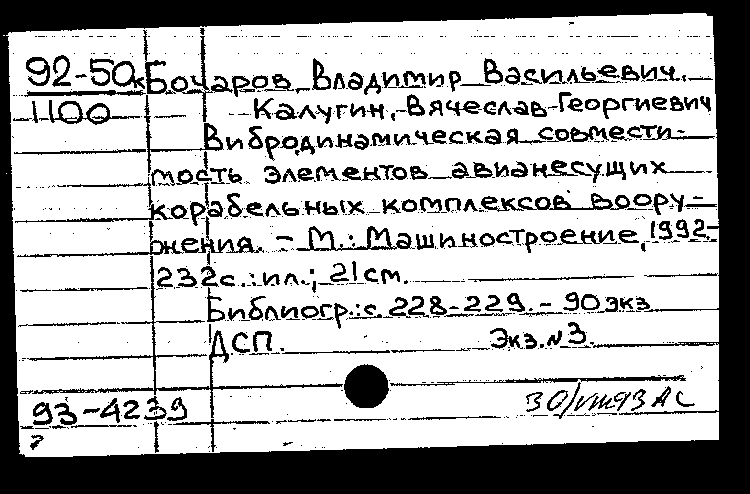 92-50к Бочаров, Владимир Васильевич.
1100 Калугин, Вячеслав Георгиевич
Вибродинамическая совмести-
мость элементов авианесущих
корабельных комплексов воору-
жения. - М.: Машиностроение, 1992.-
232с.: ил.; 21см.
Библиогр.: с. 228-229. - 90экз
ДСП. Экз.№3.
93-4239 30/VII93 АС